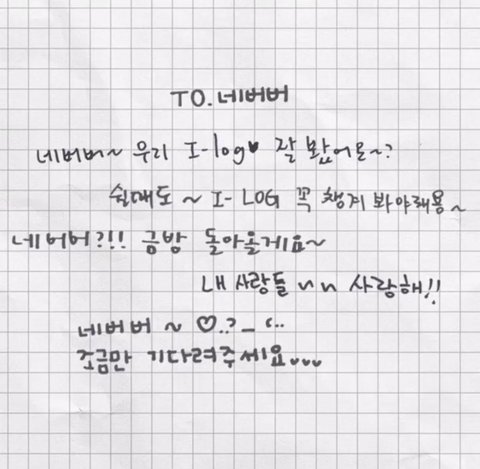 TO. 네버버
네버버~ 우리 I-log♥ 잘 봤어용~?
쉴때도 ~ I-LOG 꼭 챙겨 봐야해용~
네버버?!! 금방 돌아올게요~
내 사랑들 ㅅㅅ 사랑해!!
네버버 ~ ♡..?_ ʕ..
조금만 기다려주세요◡◡◡